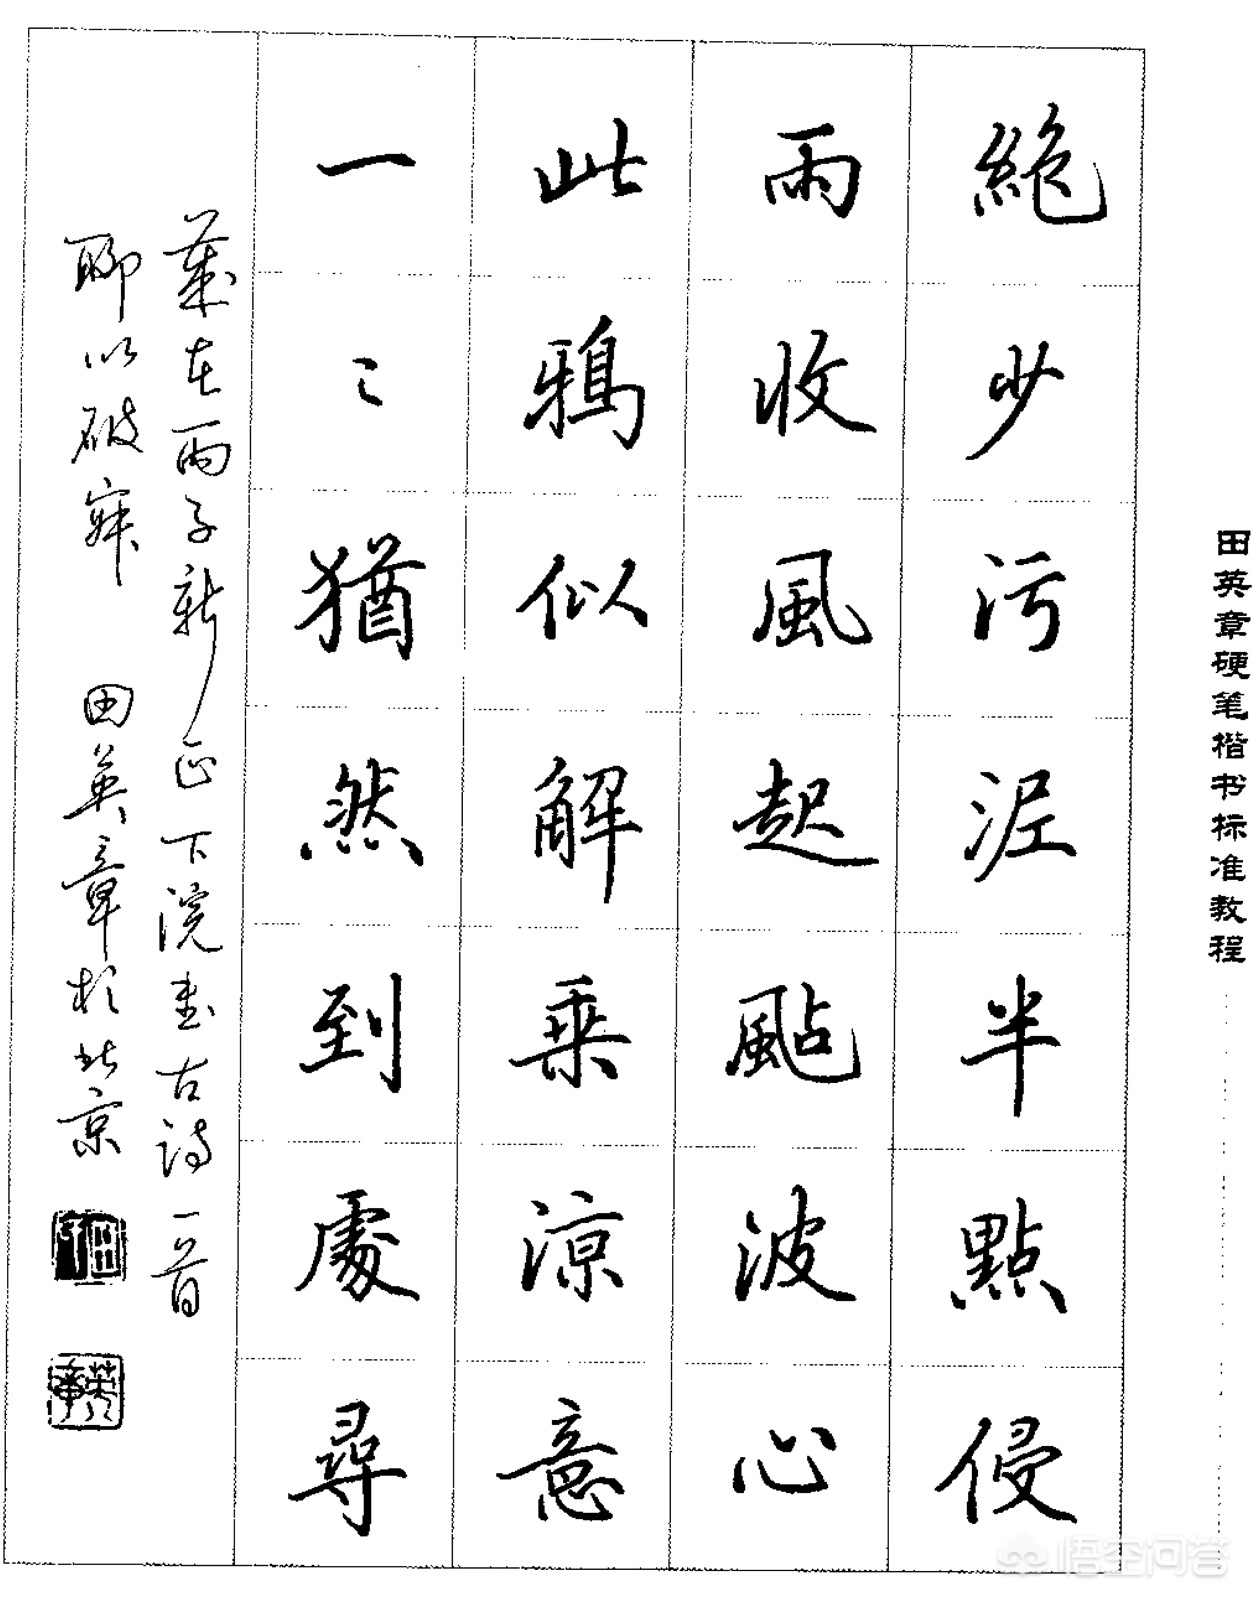 田英章硬笔楷书标准教程
絕少污泥半點侵
雨收風起颭波心
此鴉似解乘涼意
一〻猶然到處尋
歲在丙子新正下浣書古詩一首
聊以破寂 田英章於北京
悟空问答